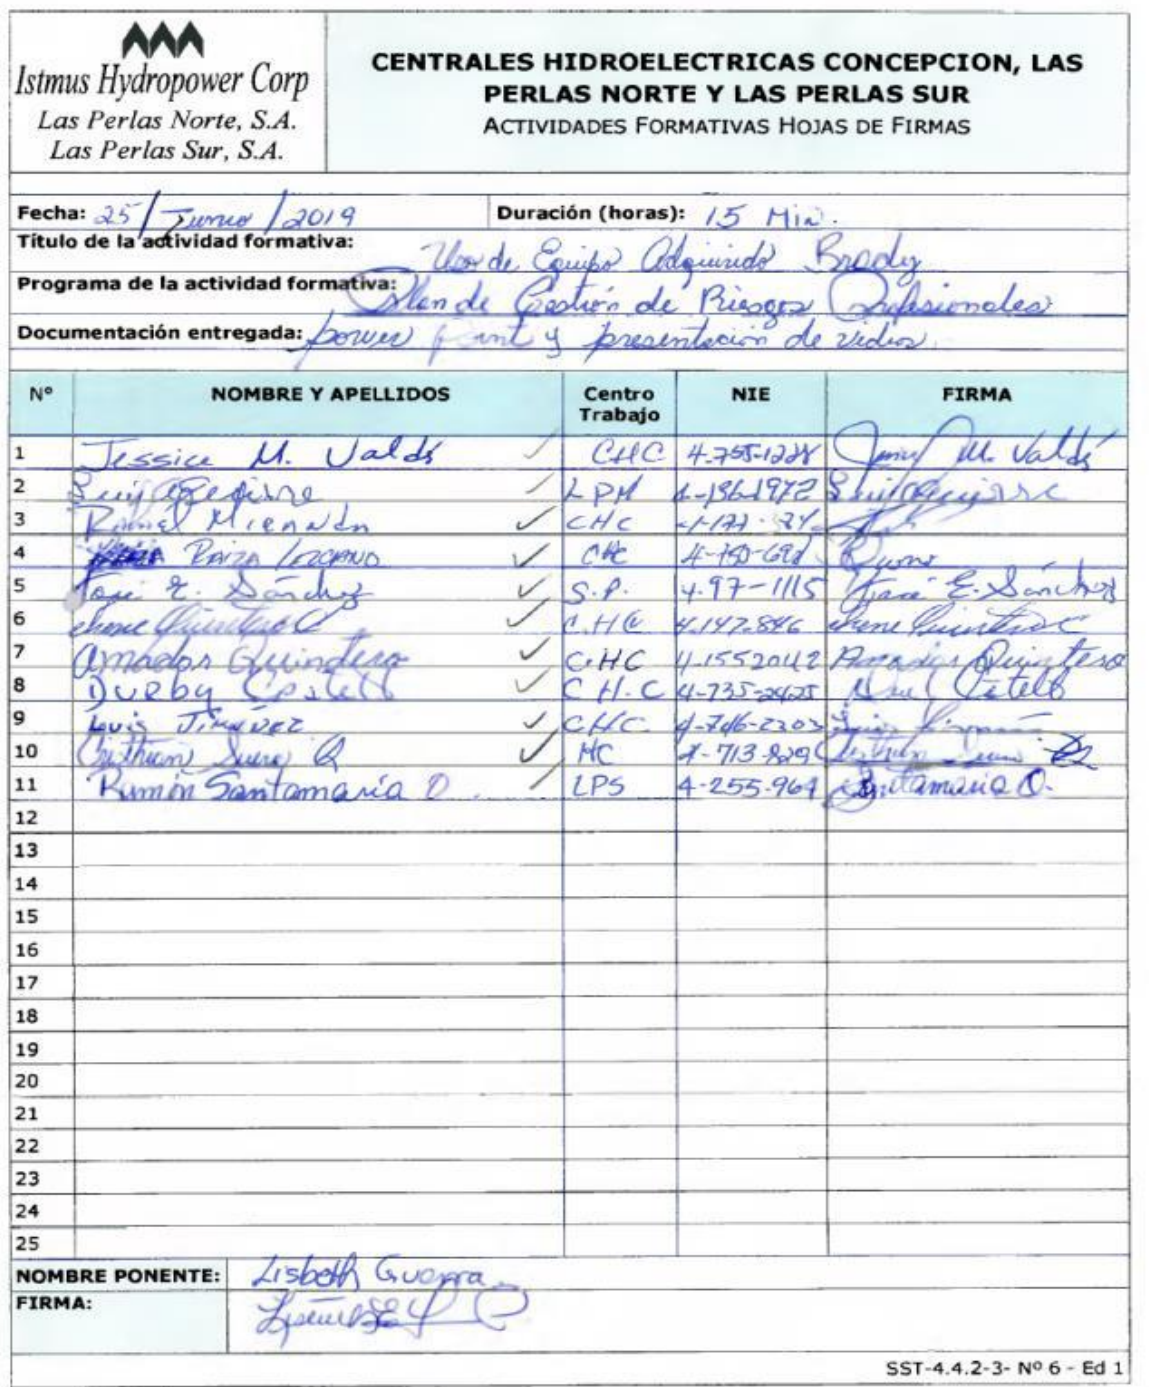 Istmus Hydropower Corp
Las Perlas Norte, S.A.
Las Perlas Sur, S.A.
CENTRALES HIDROELECTRICAS CONCEPCION, LAS
PERLAS NORTE Y LAS PERLAS SUR
ACTIVIDADES FORMATIVAS HOJAS DE FIRMAS
Fecha: 25/Junio/2019 Duración (horas): 15 Min.
Título de la actividad formativa: Uso de Equipo Adquirido Brady
Programa de la actividad formativa: Plan de Gestión de Riesgos Profesionales
Documentación entregada: power point y presentación de vidios
Nº NOMBRE Y APELLIDOS Centro Trabajo NIE FIRMA
1 Jessica M. Valdés CHC 4-755-1228 M. Valdés
2 Luis 4-196-1972 Luis
3 CHC
4 Raiza Lezcano CHC
5 José E. Sánchez S.P. 4-97-1115 José E. Sánchez
6 Irene Quintero C C.H.C 4.147.846 Irene Quintero C
7 Amador Quintero C.HC 4.1552042 Amador Quintero
8 Castell C H.C 4-735-2425 Castell
9 Luis Jiménez CHC 4-746-2303 Luis
10 HC 4-713-829
11 Ramón Santamaría O. LPS 4-255-964 Santamaria O.
12
13
14
15
16
17
18
19
20
21
22
23
24
25
NOMBRE PONENTE: Lisbeth Guerra
FIRMA:
SST-4.4.2-3- Nº 6 - Ed 1